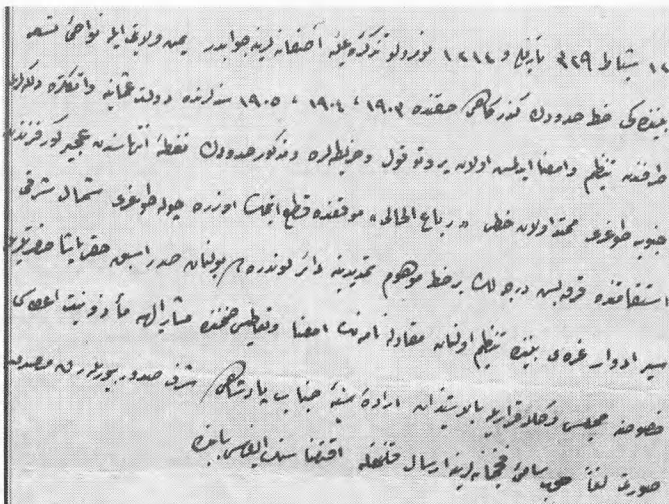 ١٢ شباط ٣٢٩ تاريخ و ١٢١٢ نومرولو تذكرهٔ عليهٔ آصفانه‌لرينه جوابدر يمن ولايتى ايله نواحئ تسعه
بيننده‌كى خط حدودك كذركاهى حقنده ١٩٠٣، ١٩٠٤، ١٩٠٥ سنه‌لرنده دولت عثمانيه وانكلتره
طرفندن تنظيم وامضا ايديلمش اولان پروتوقول وخريطه‌لره ومذكور حدودك نقطهٔ انتهاسندن
جنوبه طوغرى ممتد اولان خطى «رباع الخالى» موقعنده قطع ايتمك اوزره چوله طوغرى شمال شرقى
استقامتنده قرق بش درجه‌لك بر خط موهوم تمديدينه دائر لوندره‌ده بولنان صدر اسبق حقى پاشا حضرتلريله
سير ادوار غره‌ى بيننده تنظيم اولنان مقاوله‌نامه‌نك امضا وتعاطيسى ضمننده مشار اليهه مأذونيت اعطاسى
خصوصنه مجلس وكلا قراريله بالاستيذان ارادهٔ سنيهٔ جناب پادشاهى شرف صدور بيوريلهرق مصدق
صورتى لفاً سوى سامئ فخيمانه‌لرينه ارسال قلنمغله اقتضاسنك ايفاسى بابنده